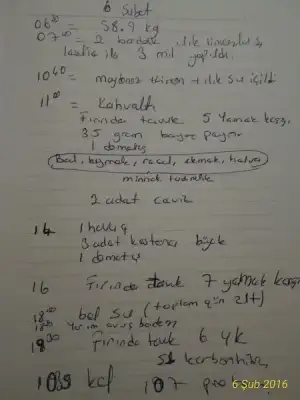 6 Şubat
06:30 = 58.9 kg
07:00 = 2 bardak ılık limonlu su
ile 3 mil
10:40 = maydonoz + ılık su içildi
11:00 = Kahvaltı
Fırında tavuk 5 yemek kaşığı
35 gram beyaz peynir
1 domates
Bal, kaymak, reçel, ekmek, helva
minnak tadımlık
2 adet ceviz
14 1
3 adet kestane
1 domates
16 Fırında tavuk 7 yemek kaşığı
18:00 bol su (toplam gün 2 lt)
Yarım avuç badem
18:30 Fırında tavuk 6 yk
karbonhidrat
kcal 107 pro
6 Şub 2016